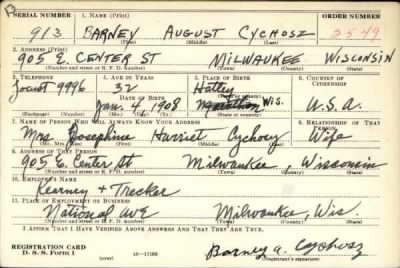 SERIAL NUMBER 1. NAME (Print) ORDER NUMBER
913 BARNEY AUGUST CYCHOSZ 2549
(First) (Middle) (Last)
2. ADDRESS (Print)
905 E. CENTER ST MILWAUKEE WISCONSIN
(Number and street or R. F. D. number) (Town) (County) (State)
3. TELEPHONE 4. AGE IN YEARS 5. PLACE OF BIRTH 6. COUNTRY OF CITIZENSHIP
Locust 9996 32 Hatley
DATE OF BIRTH Marathon Wis. U.S.A.
Jan. 4, 1908
(Exchange) (Number) (Mo.) (Day) (Yr.) (State or country)
7. NAME OF PERSON WHO WILL ALWAYS KNOW YOUR ADDRESS 8. RELATIONSHIP OF THAT PERSON
Mrs Josephine Harriet Cychosz Wife
(Mr., Mrs., Miss) (First) (Middle) (Last)
9. ADDRESS OF THAT PERSON
905 E. Center St Milwaukee, Wisconsin
(Number and street or R. F. D. number) (Town) (County) (State)
10. EMPLOYER'S NAME
Kearney + Trecker
11. PLACE OF EMPLOYMENT OR BUSINESS
National Ave Milwaukee, Wis.
(Number and street or R. F. D. number) (Town) (County) (State)
I AFFIRM THAT I HAVE VERIFIED ABOVE ANSWERS AND THAT THEY ARE TRUE.
REGISTRATION CARD
D. S. S. Form 1 (over) Barney A. Cychosz
(Registrant's signature)